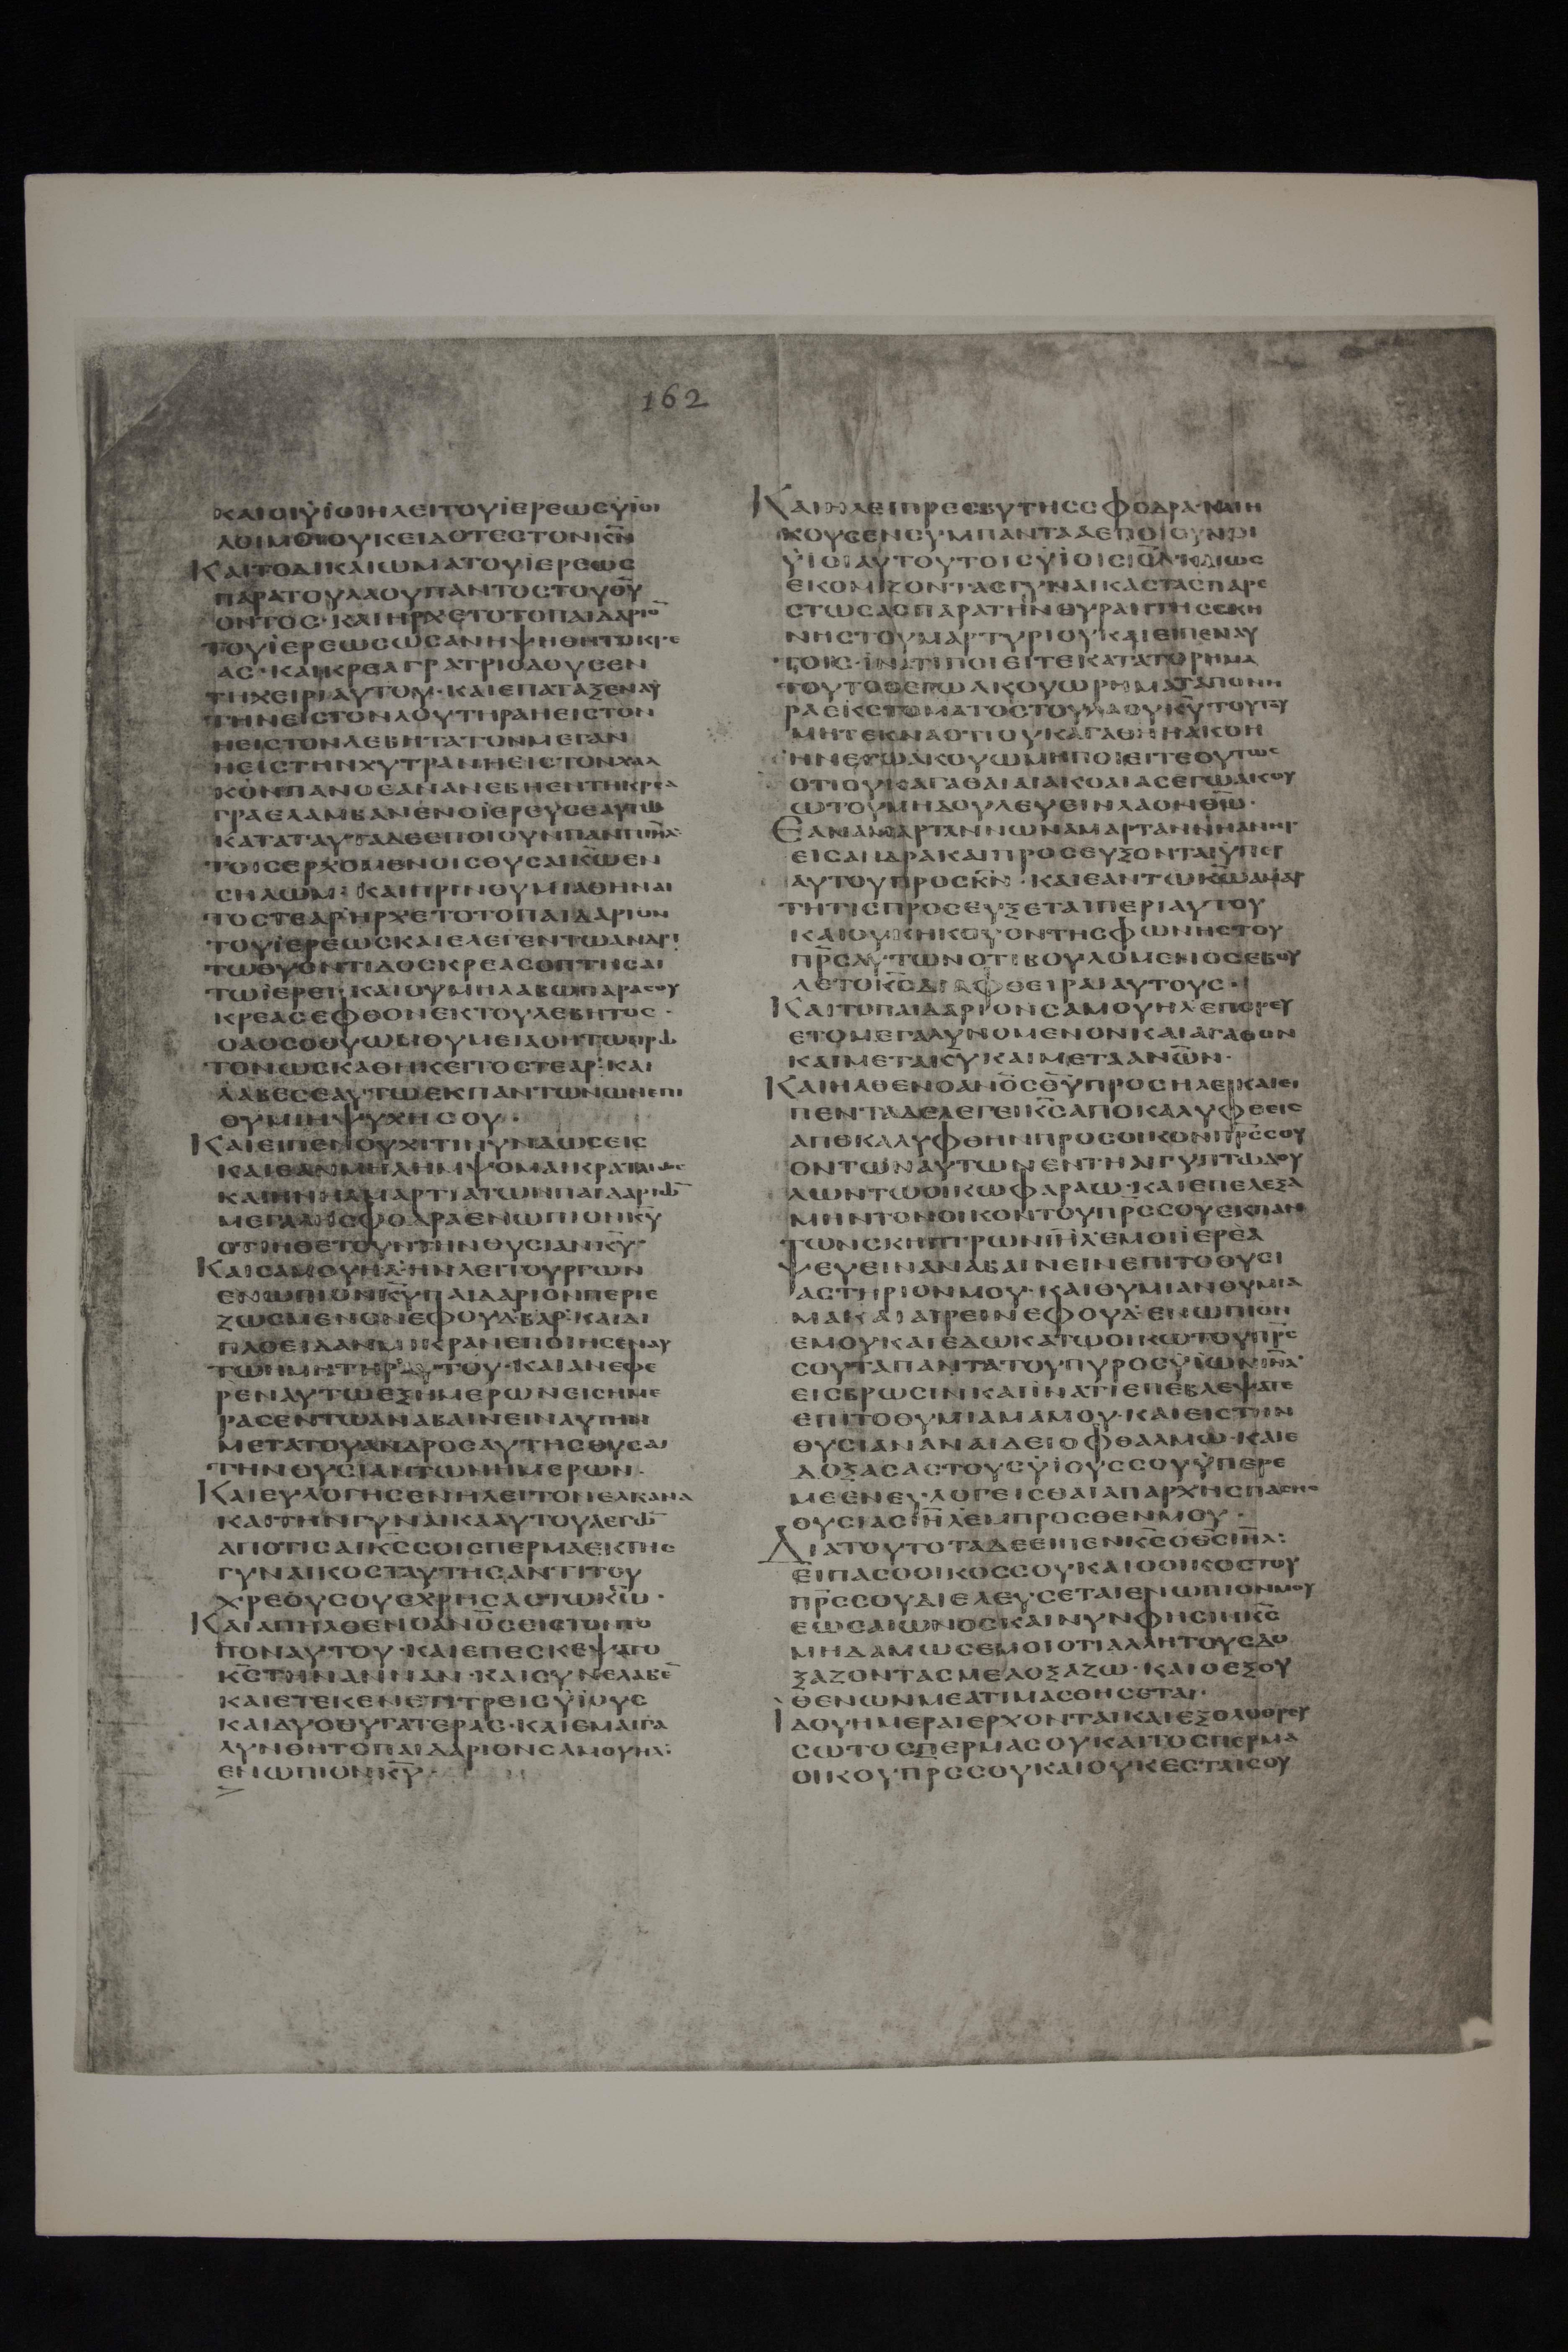 162
ΚΑΙΟΙΫΙΟΙΗΛΕΙΤΟΥΪΕΡΕΩΣΫΙΟΙ
ΛΟΙΜΟΙΟΥΚΕΙΔΟΤΕΣΤΟΝΚ̅Ν̅
ΚΑΙΤΟΔΙΚΑΙΩΜΑΤΟΥΪΕΡΕΩΣ
ΠΑΡΑΤΟΥΛΑΟΥΠΑΝΤΟΣΤΟΥΘΥ
ΟΝΤΟΣ·ΚΑΙΗΡΧΕΤΟΤΟΠΑΙΔΑΡΙΟ̅
ΤΟΥΪΕΡΕΩΣΩΣΑΝΗΨΗΘΗΤΟΚΡΕ
ΑΣ·ΚΑΙΚΡΕΑΓΡΑΤΡΙΟΔΟΥΣΕΝ
ΤΗΧΕΙΡΙΑΥΤΟΥ·ΚΑΙΕΠΑΤΑΞΕΝΑΥ
ΤΗΝΕΙΣΤΟΝΛΟΥΤΗΡΑΗΕΙΣΤΟΝ
ΗΕΙΣΤΟΝΛΕΒΗΤΑΤΟΝΜΕΓΑΝ
ΗΕΙΣΤΗΝΧΥΤΡΑΝΗΕΙΣΤΟΝΧΑΛ
ΚΟΝΠΑΝΟΕΑΝΑΝΕΒΗΕΝΤΗΚΡΕΑ
ΓΡΑΕΛΑΜΒΑΝΕΝΟΪΕΡΕΥΣΕΑΥΤΩ
ΚΑΤΑΤΑΥΤΑΔΕΕΠΟΙΟΥΝΠΑΝΤΙΙ̅Η̅Λ̅·
ΤΟΙΣΕΡΧΟΜΕΝΟΙΣΘΥΣΑΙΚ̅Ω̅ΕΝ
ΣΗΛΩΜ: ΚΑΙΠΡΙΝΘΥΜΙΑΘΗΝΑΙ
ΤΟΣΤΕΑΡ·ΗΡΧΕΤΟΤΟΠΑΙΔΑΡΙΟΝ
ΤΟΥΪΕΡΕΩΣΚΑΙΕΛΕΓΕΝΤΩΑΝΔΡΙ
ΤΩΘΥΟΝΤΙΔΟΣΚΡΕΑΣΟΠΤΗΣΑΙ
ΤΩΪΕΡΕΙ·ΚΑΙΟΥΜΗΛΑΒΩΠΑΡΑΣΟΥ
ΚΡΕΑΣΕΦΘΟΝΕΚΤΟΥΛΕΒΗΤΟΣ·
ΤΟΝΩΣΚΑΘΗΚΕΙΤΟΣΤΕΑΡ:ΚΑΙ
ΛΑΒΕΣΕΑΥΤΩΕΚΠΑΝΤΩΝΩΝΕΠΙ
ΘΥΜΙΗΨΥΧΗΣΟΥ·
ΚΑΙΕΙΠΕΝΟΥΧΙΤΙΝΥΝΔΩΣΕΙΣ
ΚΑΙΕΑΝΜΗΛΗΜΨΟΜΑΙΚΡΑΤΑΙΩΣ
ΚΑΙΗΝΗΑΜΑΡΤΙΑΤΩΝΠΑΙΔΑΡΙΩ̅
ΜΕΓΑΛΗΣΦΟΔΡΑΕΝΩΠΙΟΝΚ̅Υ̅
ΟΤΙΗΘΕΤΟΥΝΤΗΝΘΥΣΙΑΝΚ̅Υ̅·
ΚΑΙΣΑΜΟΥΗΛ·ΗΝΛΕΙΤΟΥΡΓΩΝ
ΕΝΩΠΙΟΝΚ̅Υ̅ΠΑΙΔΑΡΙΟΝΠΕΡΙΕ
ΖΩΣΜΕΝΟΝΕΦΟΥΔ·ΒΑΡ:ΚΑΙΔΙ
ΠΛΟΕΙΔΑΜΙΚΡΑΝΕΠΟΙΗΣΕΝΑΥ
ΤΩΗΜΗΤΗΡΑΥΤΟΥ·ΚΑΙΑΝΕΦΕ
ΡΕΝΑΥΤΩΕΞΗΜΕΡΩΝΕΙΣΗΜΕ
ΡΑΣΕΝΤΩΑΝΑΒΑΙΝΕΙΝΑΥΤΗΝ
ΜΕΤΑΤΟΥΑΝΔΡΟΣΑΥΤΗΣΘΥΣΑΙ
ΤΗΝΘΥΣΙΑΝΤΩΝΗΜΕΡΩΝ·
ΚΑΙΕΥΛΟΓΗΣΕΝΗΛΕΙΤΟΝΕΛΚΑΝΑ
ΚΑΙΤΗΝΓΥΝΑΙΚΑΑΥΤΟΥΛΕΓΩ̅
ΑΠΟΤΙΣΑΙΚ̅Σ̅ΣΟΙΣΠΕΡΜΑΕΚΤΗΣ
ΓΥΝΑΙΚΟΣΤΑΥΤΗΣΑΝΤΙΤΟΥ
ΧΡΕΟΥΣΟΥΕΧΡΗΣΑΣΤΩΚ̅Ω̅·
ΚΑΙΑΠΗΛΘΕΝΟΑΝ̅Ο̅Σ̅ΕΙΣΤΟΝΤΟ
ΠΟΝΑΥΤΟΥ·ΚΑΙΕΠΕΣΚΕΨΑΤΟ
Κ̅Σ̅ΤΗΝΑΝΝΑΝ·ΚΑΙΣΥΝΕΛΑΒΕ̅
ΚΑΙΕΤΕΚΕΝΕΤΙΤΡΕΙΣΫΙΟΥΣ
ΚΑΙΔΥΟΘΥΓΑΤΕΡΑΣ·ΚΑΙΕΜΕΓΑ
ΛΥΝΘΗΤΟΠΑΙΔΑΡΙΟΝΣΑΜΟΥΗΛ:
ΕΝΩΠΙΟΝΚ̅Υ̅·
ΚΑΙΗΛΕΙΠΡΕΣΒΥΤΗΣΣΦΟΔΡΑ·ΚΑΙΗ
ΚΟΥΣΕΝΣΥΜΠΑΝΤΑΑΕΠΟΙΟΥΝΟΙ
ΫΙΟΙΑΥΤΟΥΤΟΙΣΫΙΟΙΣΙ̅Η̅Λ̅ΚΑΙΩΣ
ΕΚΟΙΜΙΖΟΝΤΑΣΓΥΝΑΙΚΑΣΤΑΣΠΑΡΕ
ΣΤΩΣΑΣΠΑΡΑΤΗΝΘΥΡΑΝΤΗΣΣΚΗ
ΝΗΣΤΟΥΜΑΡΤΥΡΙΟΥΚΑΙΕΙΠΕΝΑΥ
ΤΟΙΣ·ΪΝΑΤΙΠΟΙΕΙΤΕΚΑΤΑΤΟΡΗΜΑ
ΤΟΥΤΟΟΕΓΩΑΚΟΥΩΡΗΜΑΤΑΠΟΝΗ
ΡΑΕΚΣΤΟΜΑΤΟΣΤΟΥΛΑΟΥΚ̅Υ̅ΤΟΥΤΟΥ
ΜΗΤΕΚΝΑΟΤΙΟΥΚΑΓΑΘΗΗΑΚΟΗ
ΗΝΕΓΩΑΚΟΥΩΜΗΠΟΙΕΙΤΕΟΥΤΩΣ
ΟΤΙΟΥΚΑΓΑΘΑΙΑΙΑΚΟΑΙΑΣΕΓΩΑΚΟΥ
ΩΤΟΥΜΗΔΟΥΛΕΥΕΙΝΛΑΟΝΘ̅Ω̅·
ΕΑΝΑΜΑΡΤΑΝΩΝΑΜΑΡΤΑΝΗΑΝΗΡ
ΕΙΣΑΝΔΡΑΚΑΙΠΡΟΣΕΥΞΟΝΤΑΙΫΠΕΡ
ΑΥΤΟΥΠΡΟΣΚ̅Ν̅·ΚΑΙΕΑΝΤΩΚ̅Ω̅ΑΜΑΡ
ΤΗΤΙΣΠΡΟΣΕΥΞΕΤΑΙΠΕΡΙΑΥΤΟΥ
ΚΑΙΟΥΚΗΚΟΥΟΝΤΗΣΦΩΝΗΣΤΟΥ
Π̅Ρ̅Σ̅ΑΥΤΩΝΟΤΙΒΟΥΛΟΜΕΝΟΣΕΒΟΥ
ΛΕΤΟΚ̅Σ̅ΔΙΑΦΘΕΙΡΑΙΑΥΤΟΥΣ·
ΚΑΙΤΟΠΑΙΔΑΡΙΟΝΣΑΜΟΥΗΛΕΠΟΡΕΥ
ΕΤΟΜΕΓΑΛΥΝΟΜΕΝΟΝΚΑΙΑΓΑΘΟΝ
ΚΑΙΜΕΤΑΚ̅Υ̅ΚΑΙΜΕΤΑΑΝ̅Ω̅Ν̅·
ΚΑΙΗΛΘΕΝΟΑΝ̅Ο̅Σ̅Θ̅Υ̅ΠΡΟΣΗΛΕΙΚΑΙΕΙ
ΠΕΝΤΑΔΕΛΕΓΕΙΚ̅Σ̅ΑΠΟΚΑΛΥΦΘΕΙΣ
ΑΠΕΚΑΛΥΦΘΗΝΠΡΟΣΟΙΚΟΝΠ̅Ρ̅Σ̅ΣΟΥ
ΟΝΤΩΝΑΥΤΩΝΕΝΤΗΑΙΓΥΠΤΩΔΟΥ
ΛΩΝΤΩΟΙΚΩΦΑΡΑΩ·ΚΑΙΕΠΕΛΕΞΑ
ΜΗΝΤΟΝΟΙΚΟΝΤΟΥΠ̅Ρ̅Σ̅ΣΟΥΕΚΠΑΝ
ΤΩΝΣΚΗΠΤΡΩΝΙ̅Η̅Λ̅ΕΜΟΙΪΕΡΕΑ
ΤΕΥΕΙΝΑΝΑΒΑΙΝΕΙΝΕΠΙΤΟΘΥΣΙ
ΑΣΤΗΡΙΟΝΜΟΥ·ΚΑΙΘΥΜΙΑΝΘΥΜΙΑ
ΜΑΚΑΙΑΙΡΕΙΝΕΦΟΥΔ·ΕΝΩΠΙΟΝ
ΕΜΟΥΚΑΙΕΔΩΚΑΤΩΟΙΚΩΤΟΥΠ̅Ρ̅Σ̅
ΣΟΥΤΑΠΑΝΤΑΤΟΥΠΥΡΟΣΫΙΩΝΙ̅Η̅Λ̅·
ΕΙΣΒΡΩΣΙΝΚΑΙΪΝΑΤΙΕΠΕΒΛΕΨΑΤΕ
ΕΠΙΤΟΘΥΜΙΑΜΑΜΟΥ·ΚΑΙΕΙΣΤΗΝ
ΘΥΣΙΑΝΑΝΑΙΔΕΙΟΦΘΑΛΜΩ·ΚΑΙΕ
ΔΟΞΑΣΑΣΤΟΥΣΫΙΟΥΣΣΟΥΫΠΕΡΕ
ΜΕΕΝΕΥΛΟΓΕΙΣΘΑΙΑΠΑΡΧΗΣΠΑΣΗΣ
ΘΥΣΙΑΣΙ̅Η̅Λ̅ΕΜΠΡΟΣΘΕΝΜΟΥ·
ΔΙΑΤΟΥΤΟΤΑΔΕΕΙΠΕΝΚ̅Σ̅ΟΘ̅Σ̅Ι̅Η̅Λ̅:
ΕΙΠΑΣΟΟΙΚΟΣΣΟΥΚΑΙΟΟΙΚΟΣΤΟΥ
Π̅Ρ̅Σ̅ΣΟΥΔΙΕΛΕΥΣΕΤΑΙΕΝΩΠΙΟΝΜΟΥ
ΕΩΣΑΙΩΝΟΣΚΑΙΝΥΝΦΗΣΙΝΚ̅Σ̅
ΜΗΔΑΜΩΣΕΜΟΙΟΤΙΑΛΛΗΤΟΥΣΔΟ
ΞΑΖΟΝΤΑΣΜΕΔΟΞΑΖΩ·ΚΑΙΟΕΞΟΥ
ΘΕΝΩΝΜΕΑΤΙΜΑΣΘΗΣΕΤΑΙ·
ΪΔΟΥΗΜΕΡΑΙΕΡΧΟΝΤΑΙΚΑΙΕΞΟΛΟΘΡΕΥ
ΣΩΤΟΣΠΕΡΜΑΣΟΥΚΑΙΤΟΣΠΕΡΜΑ
ΟΙΚΟΥΠ̅Ρ̅Σ̅ΣΟΥΚΑΙΟΥΚΕΣΤΑΙΣΟΥ